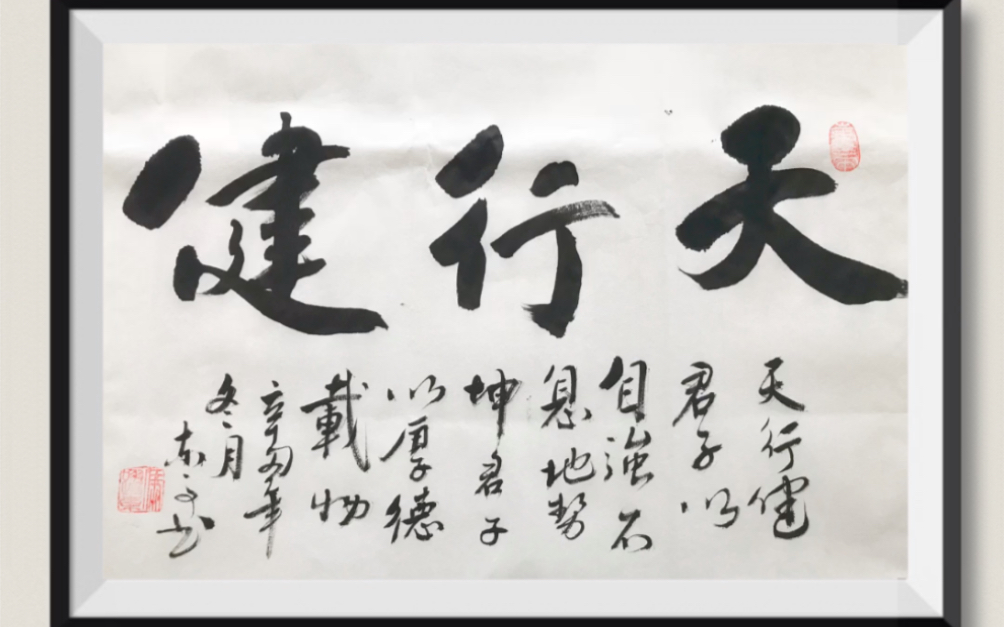 天行健
天行健
君子以
自強不
息地勢
坤君子
以厚德
載物
辛丑年
冬月
书